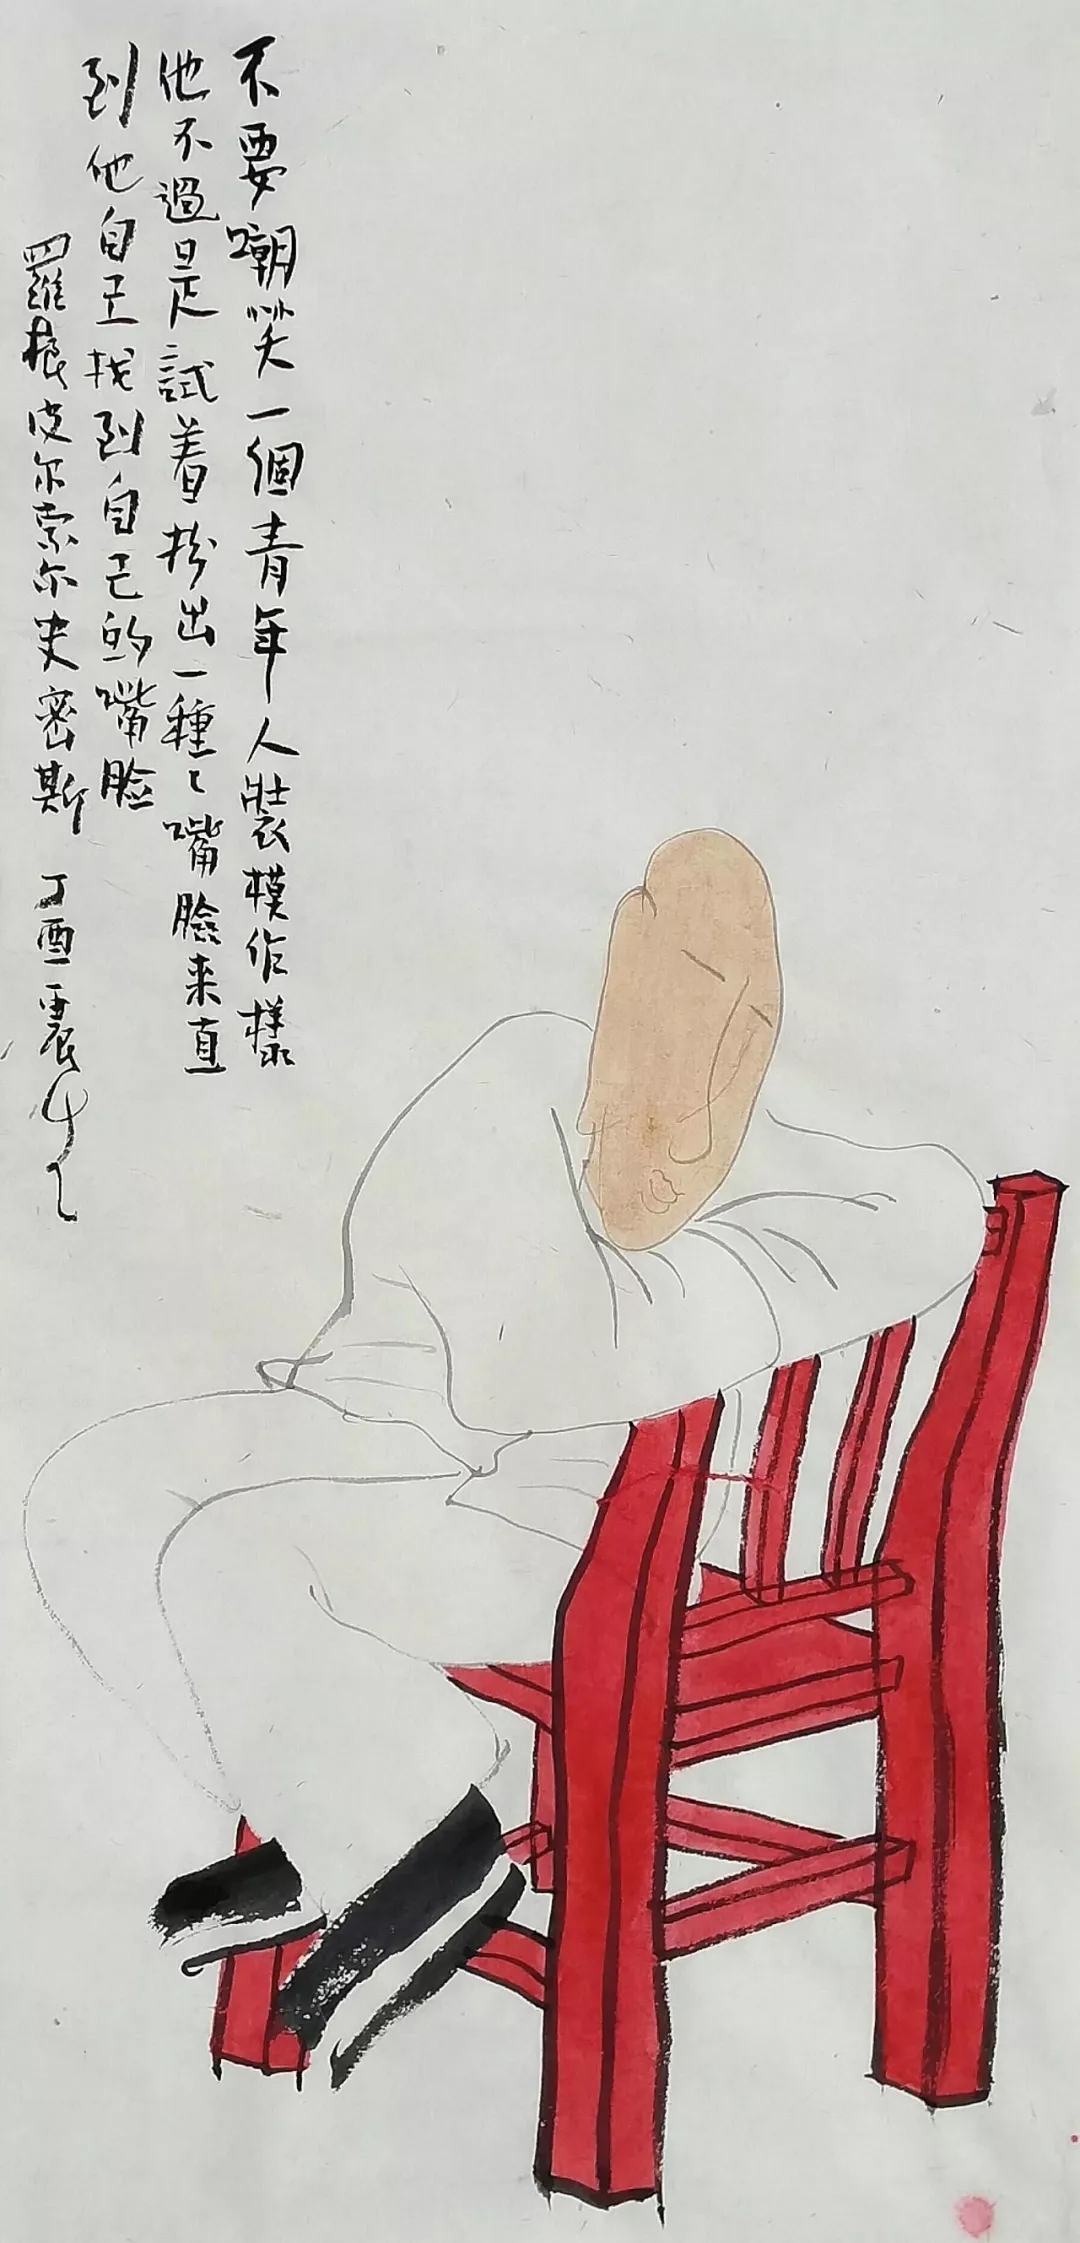 不要嘲笑一個青年人裝模作樣
他不過是試着扮出一種々嘴臉来直
到他自己找到自己的嘴脸
羅根皮尔索尔史密斯 丁酉震